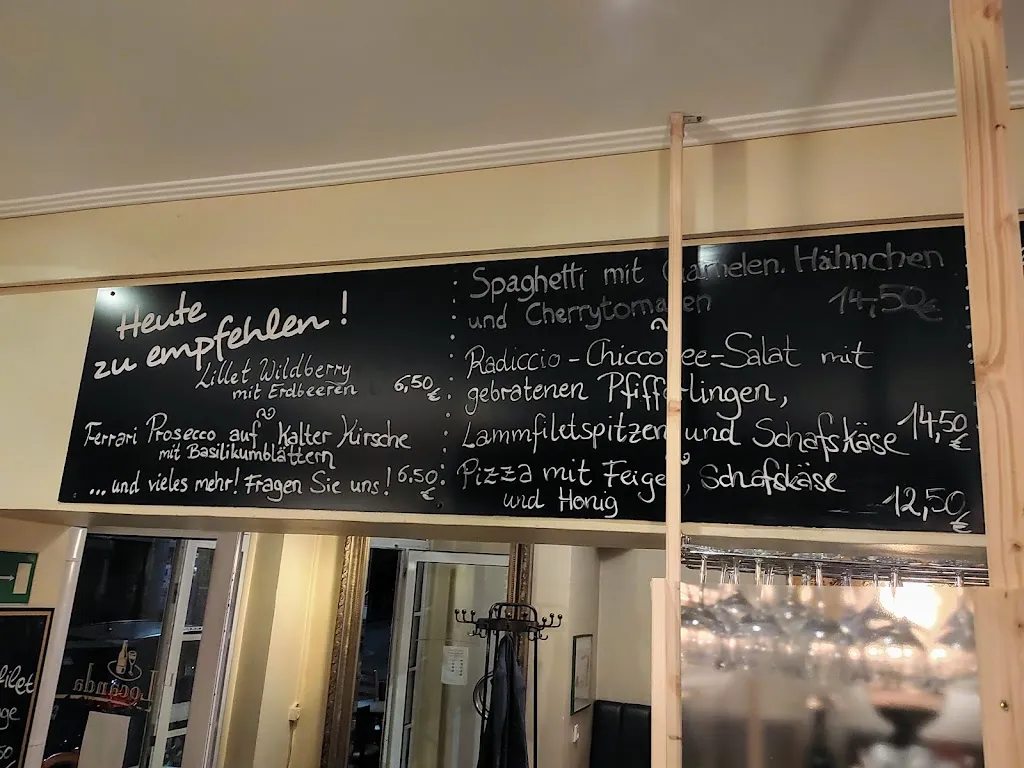 Heute
zu empfehlen!
Lillet Wildberry
mit Erdbeeren 6,50 €
Ferrari Prosecco auf Kalter Kirsche
mit Basilikumblättern
6,50 €
...und vieles mehr! Fragen Sie uns!
Spaghetti mit Garnelen, Hähnchen
und Cherrytomaten 14,50 €
Radiccio-Chiccoree-Salat mit
gebratenen Pfifferlingen,
Lammfiletspitzen und Schafskäse 14,50 €
Pizza mit Feigen, Schafskäse
und Honig 12,50 €
Locanda